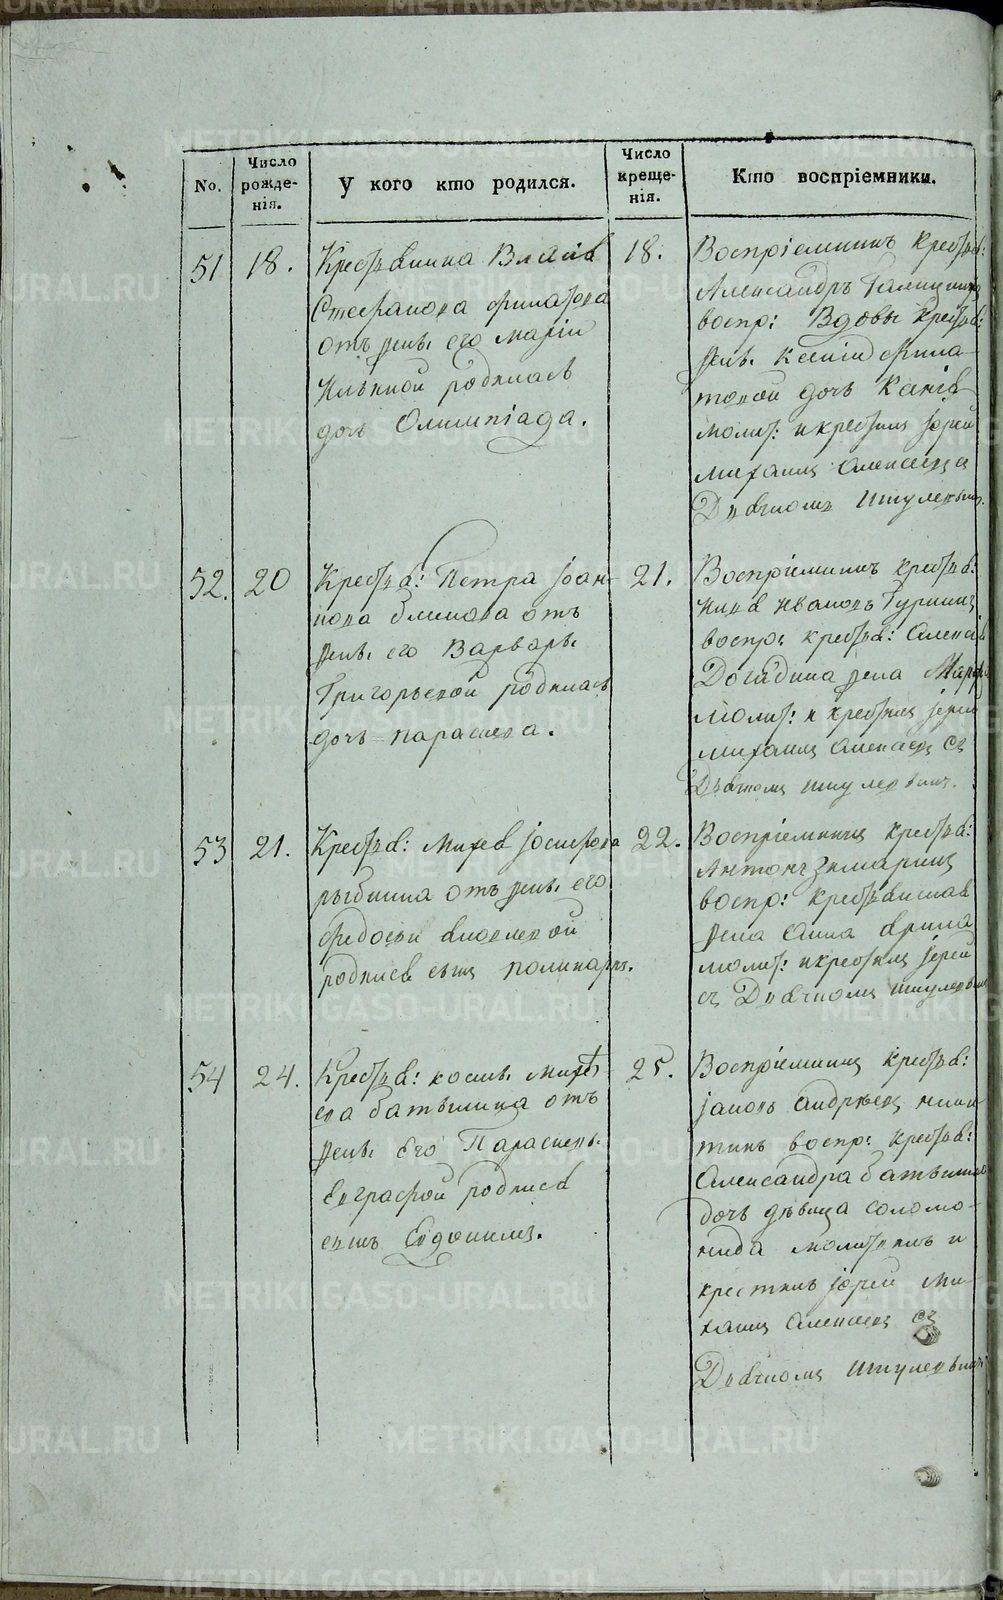 No.
Число рожде-нія.
У кого кто родился.
Число креще-нія.
Кто воспріемники.
51
18.
Крестьянина Власія
Стефанова Филатова
отъ жены его Маріи
Ильиной родилась
дочь Олимпіада.
18.
Воспріемникъ крестья:
Александръ Галицинъ
воспр: Вдовы крестья:
жены Ксеніи Фила-
товой дочь
молит: и крестилъ іерей
Михаилъ Алексеевъ съ
Дьячкомъ Шмулевымъ.
52.
20
Крестья: Петра Іоан-
нова Блинова отъ
жены его Варвары
Григорьевой родилась
дочь Параскева.
21.
Воспріемникъ крестья:
Ивановъ
воспр: крестья: Алексія
жена
молит: и крестилъ іерей
Михаилъ Алексеевъ съ
Дьячкомъ Шмулевымъ.
53
21.
Крестья: Михея Іосифова
Рыбкина отъ жены его
Федосьи Яковлевой
родился сынъ Полинарій.
22.
Воспріемникъ крестья:
Антонъ
воспр: крестьянина
жена Анна
молит: и крестилъ іерей
съ Дьячкомъ Шмулевымъ
54
24.
Крестья: Косьмы Михе
ева Батышина отъ
жены Его Парасковьи
Евграфой родился
сынъ Евдокимъ.
25.
Воспріемникъ крестья:
Іаковъ Андреевъ Ники-
тинъ воспр: крестья:
Александра Батышина
дочь дѣвица Соломо-
нида молитвилъ и
крестилъ іерей Ми-
хаилъ Алексеевъ съ
Дьячкомъ Шмулевымъ
METRIKI.GASO-URAL.RU